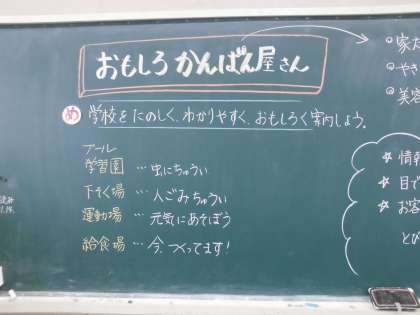 おもしろ かんばん屋さん
め 学校をたのしく、わかりやすく、おもしろく案内しよう。
プール
学習園 … 虫にちゅうい
下ぐく場 … 人ごみちゅうい
運動場 … 元気にあそぼう
給食場 … 今、つくってます!
家
やき
美容
☆ 情報
☆ 目で
☆ お客
とび